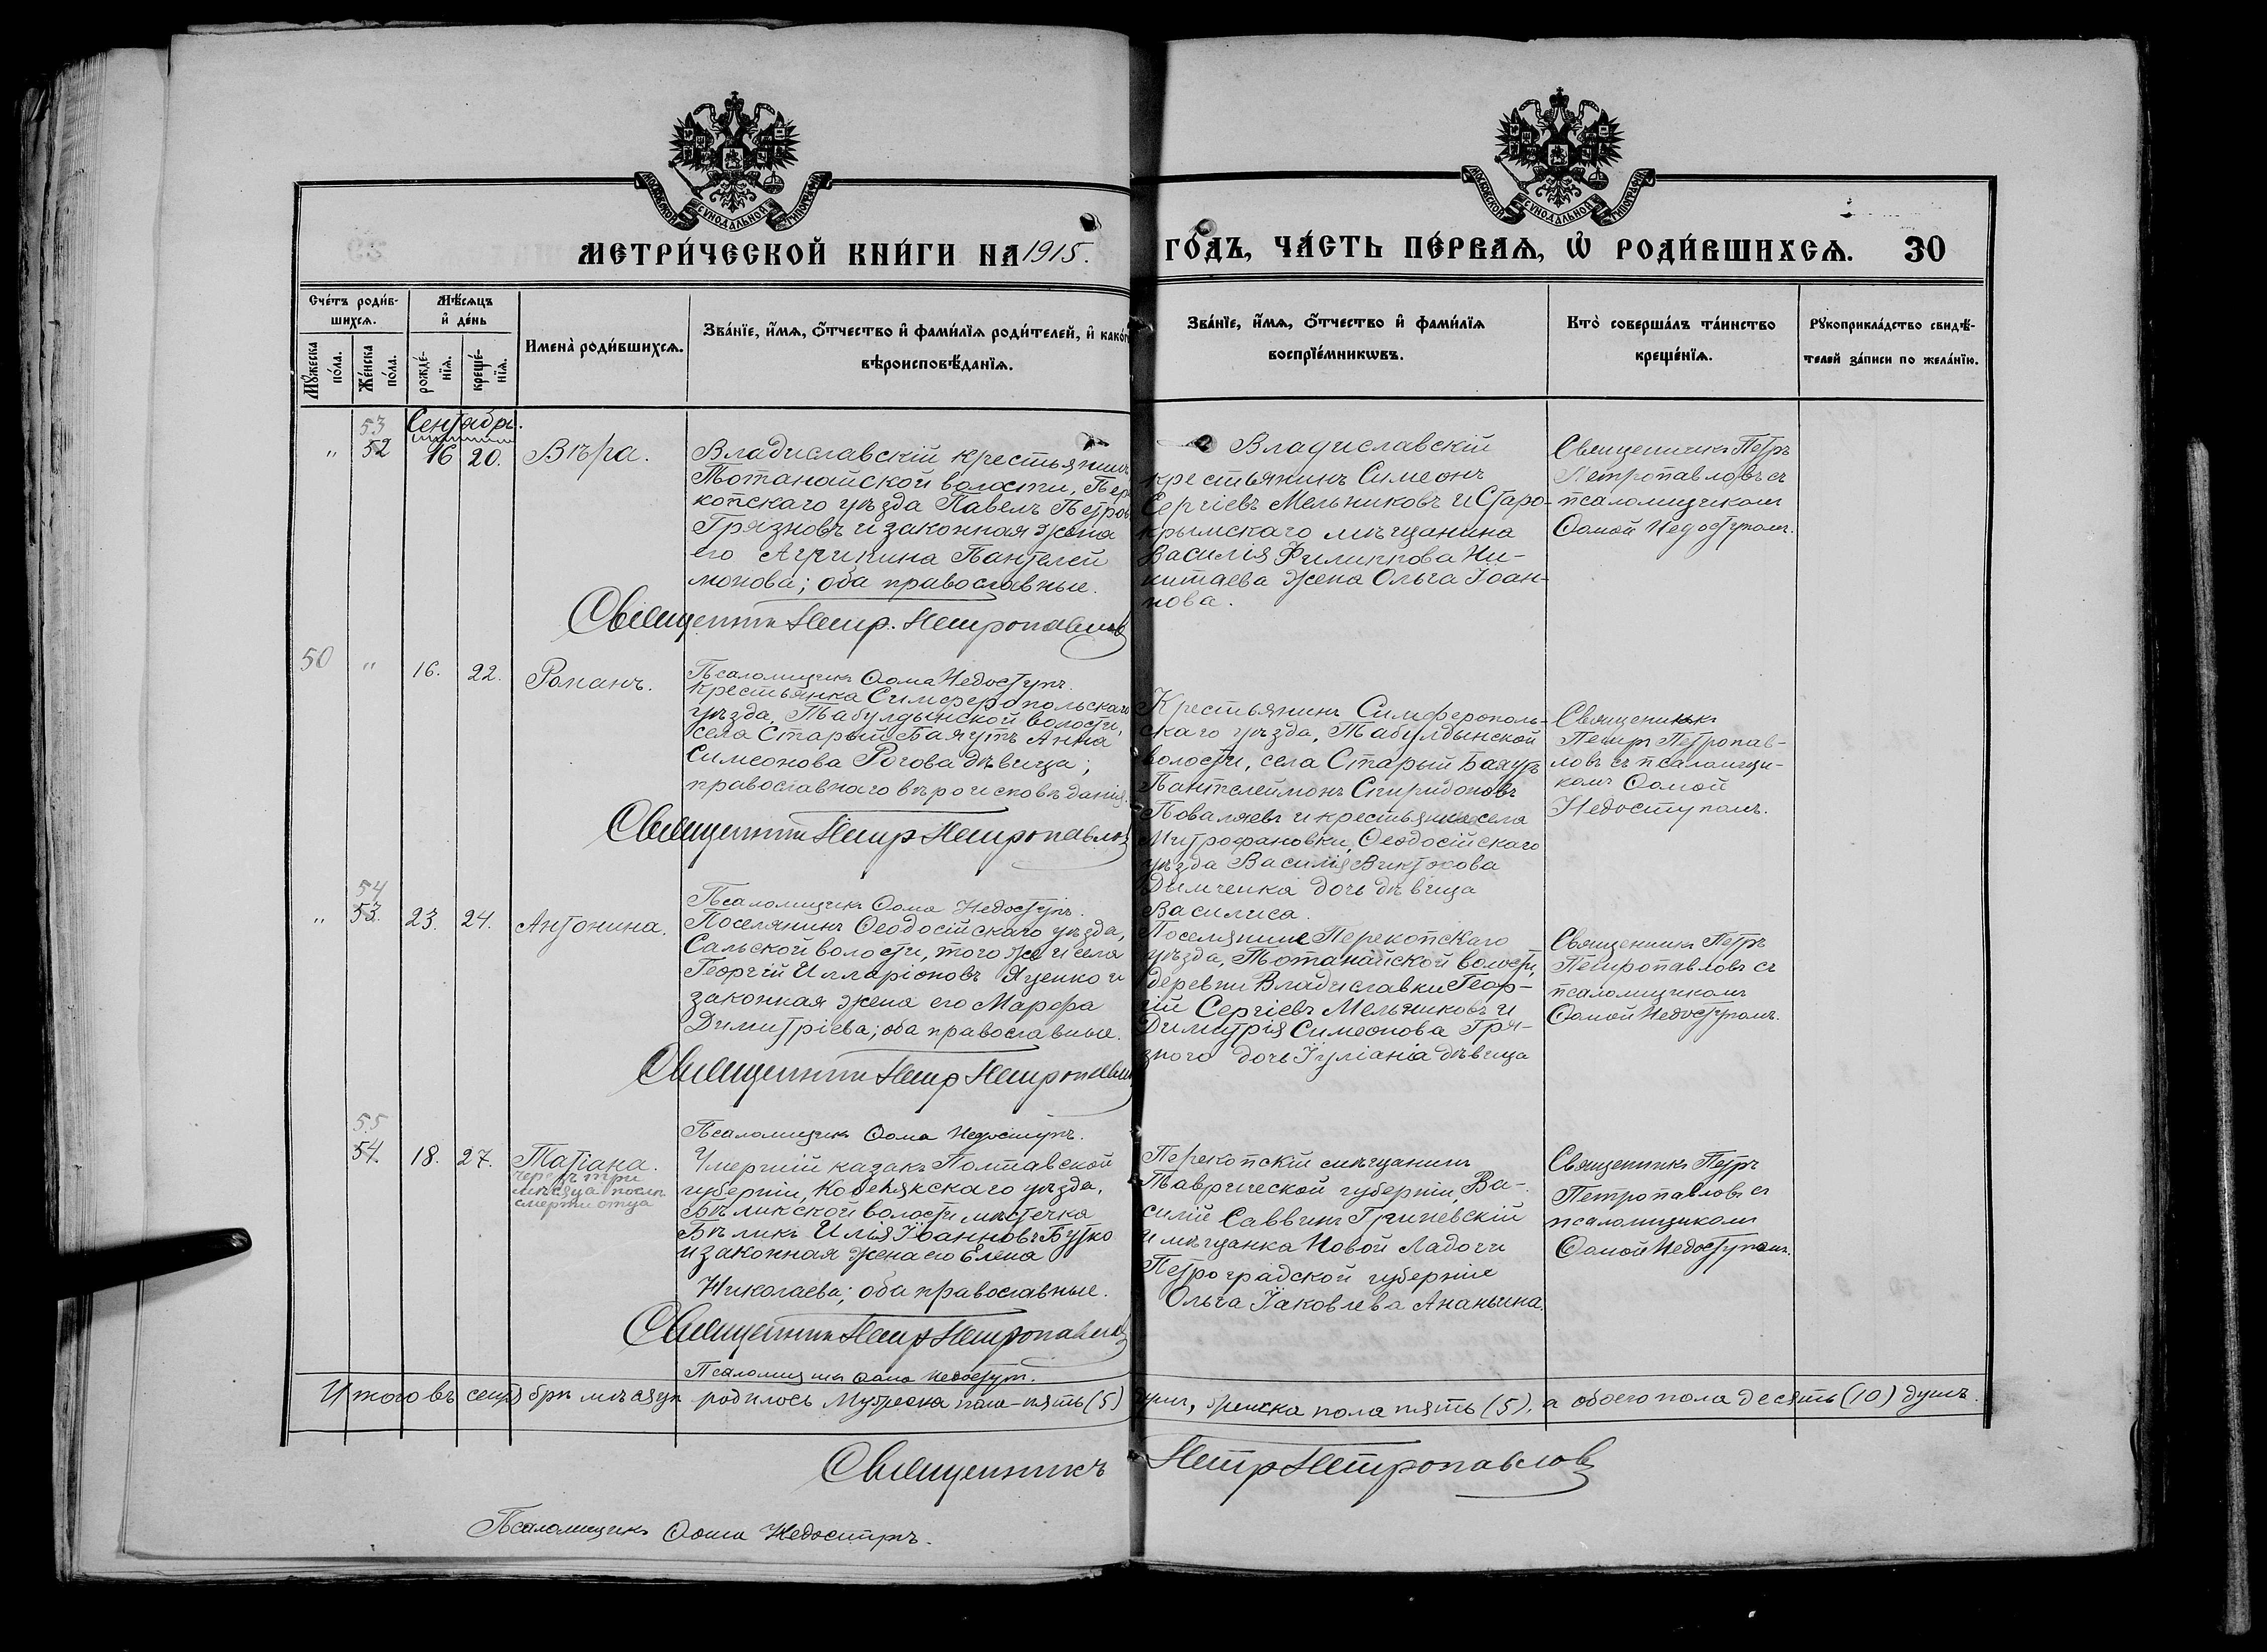 МОСКОВСКОЙ СУНОДАЛЬНОЙ ТИПОГРАФІИ
МОСКОВСКОЙ СУНОДАЛЬНОЙ ТИПОГРАФІИ
МЕТРИ́ЧЕСКОЙ КНИ́ГИ НА 1915.
ГО́ДЪ, ЧА́СТЬ ПЕ́РВАѦ, Ѡ҆ РОДИ́ВШИХСѦ. 30
Сче́тъ роди́в-
шихсѧ.
Мѣ́сѧцъ
и҆ де́нь
Мꙋ́жеска
по́ла.
Же́нска
по́ла.
рожде́-
нїѧ.
креще́-
нїѧ.
Имена̀ роди́вшихсѧ.
Зва́нїе, и҆́мѧ, ѻ҆́тчество и҆ фами́лїѧ роди́телей, и҆ како́гѡ
вѣроисповѣ́данїѧ.
Зва́нїе, и҆́мѧ, ѻ҆́тчество и҆ фами́лїѧ
воспрїе́мникѡвъ.
Кто̀ соверша́лъ та́инство
креще́нїѧ.
Рꙋкоприкла́дство свидѣ́-
телей за́писи по жела́нїю.
Сентябрь.
53
„ 52 16 20. Вѣра.
Владиславскій крестьянинъ
Тотанайской волости, Пере
копскаго уѣзда Павелъ Петровъ
Грязновъ и законная жена
его Агрипина Пантелей
монова; оба православные.
Священникъ Петръ Петропавловъ
Владиславскій
крестьянинъ Симеонъ
Сергіевъ Мельниковъ и Старо-
крымскаго мѣщанина
Василія Филиппова Ни-
китаева жена Ольга Іоан-
нова.
Священникъ Петръ
Петропавловъ съ
псаломщикомъ
Ѳомой Недоступомъ.
50 „ 16. 22. Романъ.
Псаломщикъ Ѳома Недоступъ.
Крестьянка Симферопольскаго
уѣзда, Табулдынской волости,
села Старый Баяутъ Анна
Симеонова Рогова дѣвица;
православнаго вѣроисповѣданія.
Священникъ Петръ Петропавловъ
Крестьянинъ Симферополь-
скаго уѣзда, Табулдынской
волости, села Старый Баяутъ
Пантелеймонъ Спиридоновъ
Поваляевъ и крестьянина села
Митрофановки, Ѳеодосійскаго
уѣзда Василія Викторова
Димченка дочь дѣвица
Василиса.
Священникъ
Петръ Петропав-
ловъ съ псаломщи-
комъ Ѳомой
Недоступомъ.
54
„ 53. 23. 24. Антонина.
Псаломщикъ Ѳома Недоступъ.
Поселянинъ Ѳеодосійскаго уѣзда,
Сальской волости, того же и села
Георгій Илларіоновъ Яценко и
законная жена его Марѳа
Димитріева; оба православные.
Священникъ Петръ Петропавловъ
Поселянине Перекопскаго
уѣзда, Тотанайской волости,
деревни Владиславки Геор-
гій Сергіевъ Мельниковъ и
Димитрія Симеонова Гря-
зного дочь Іуліанія дѣвица
Священникъ Петръ
Петропавловъ съ
псаломщикомъ
Ѳомой Недоступомъ.
55
54. 18. 27. Татіана.
черезъ три
мѣсяца послѣ
смерти отца
Псаломщикъ Ѳома Недоступъ.
Умершій казакъ Полтавской
губерніи, Кобелякскаго уѣзда,
Бѣликской волости мѣстечка
Бѣликъ Илья Іоанновъ Бутко
и законная жена его Елена
Николаева; оба православные.
Священникъ Петръ Петропавловъ
Псаломщикъ Ѳома Недоступъ.
Перекопскій мѣщанинъ
Таврической губерніи, Ва-
силій Саввинъ Гриневскій
и мѣщанка Новой Ладоги
Петроградской губерніи
Ольга Іаковлева Ананьина.
Священникъ Петръ
Петропавловъ съ
псаломщикомъ
Ѳомой Недоступомъ.
Итого въ сентябрѣ мѣсяцѣ родилось Мужеска пола-пять (5) душъ, женска пола пять (5), а обоего пола десять (10) душъ.
Священникъ Петръ Петропавловъ
Псаломщикъ Ѳома Недоступъ.